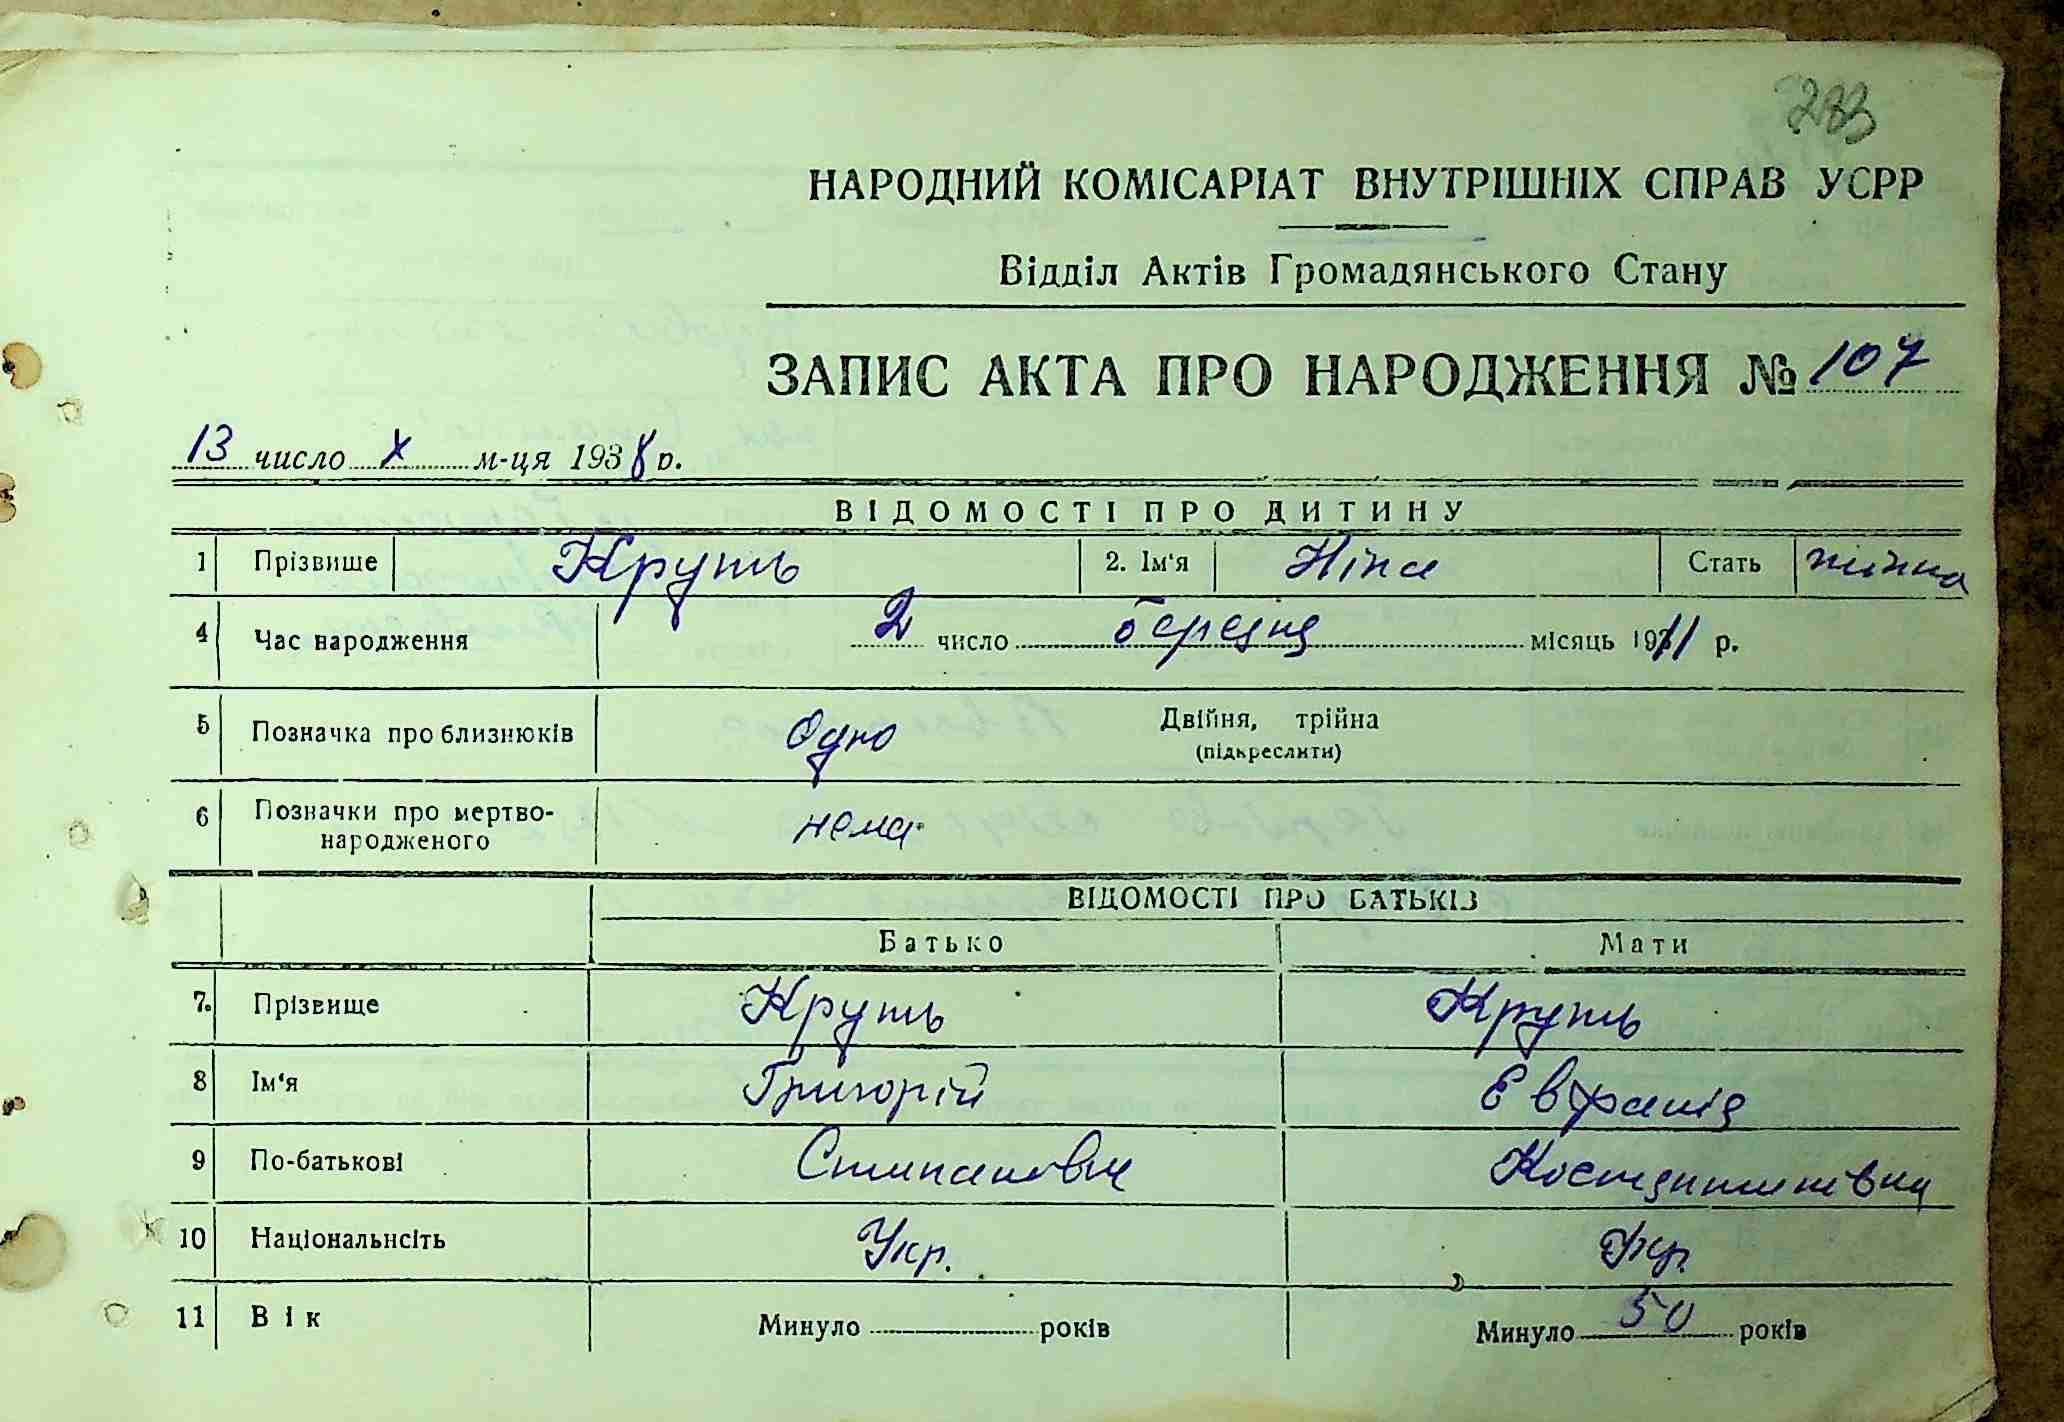 283
НАРОДНИЙ КОМІСАРІАТ ВНУТРІШНІХ СПРАВ УСРР
Відділ Актів Громадянського Стану
ЗАПИС АКТА ПРО НАРОДЖЕННЯ № 107
13 число X м-ця 1938 р.
ВІДОМОСТІ ПРО ДИТИНУ
1 Прізвище Круть 2. Ім'я Ніна Стать жінка
4 Час народження 2 число березня місяць 1911 р.
5 Позначка про близнюків Одно Двійня, трійна
(підкреслити)
6 Позначки про мертво-
народженого нема
ВІДОМОСТІ ПРО БАТЬКІВ
Батько Мати
7. Прізвище Круть Круть
8 Ім'я Григорій Евфанія
9 По-батькові Степанович Костянтинівна
10 Національнсіть Укр. Укр.
11 Вік Минуло років Минуло 50 років